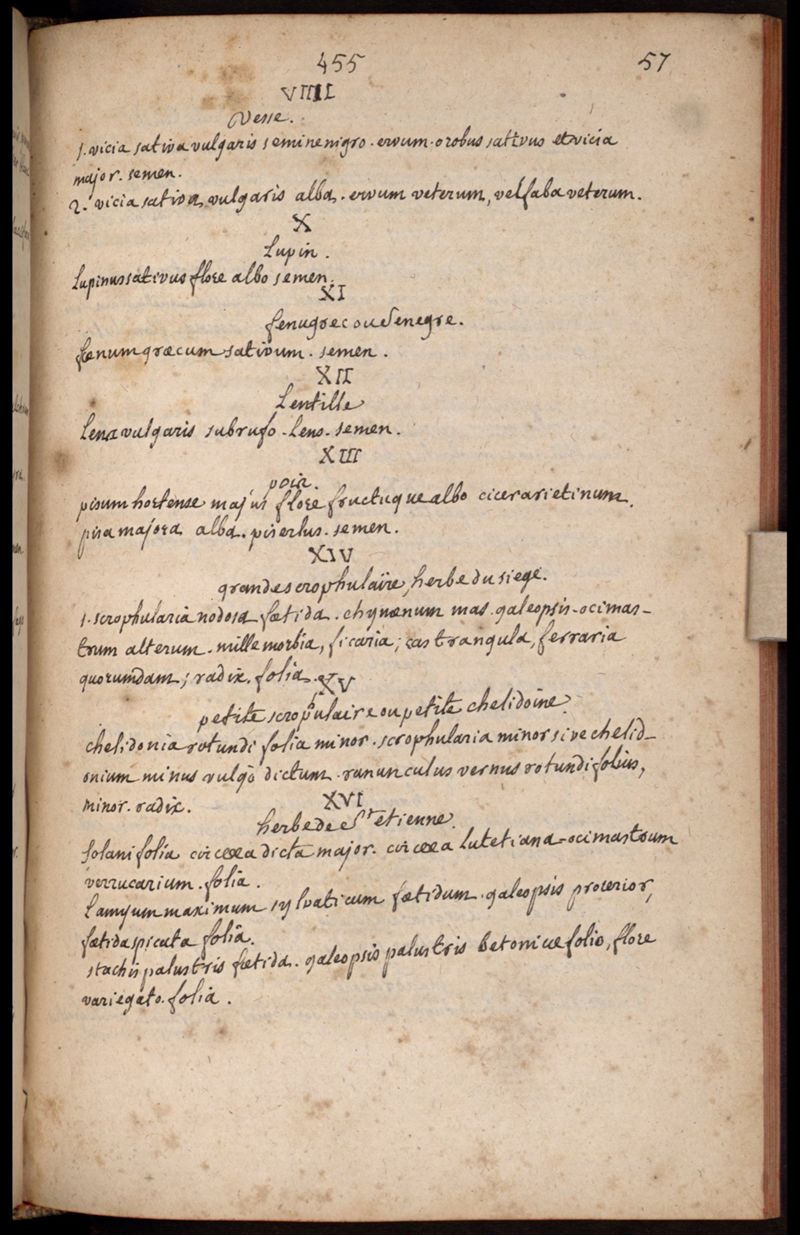 455 57
VIIII
Vesse.
1. vicia sativa vulgaris semine nigro. ervum. orobus sattvus et vicia
major. semen.
2. vicia sativa, vulgaris alba. ervum veterum, vel faba veterum.
X
Lupin.
Lupinus sativus flore albo semen.
XI
fenugrec ou Senegre.
fenum græcum sativum. semen.
XII
Lentille
Lens vulgaris subrufo. Lens. semen.
XIII
poix.
pisum hortense majus flore fructuque albo cicer arietinum.
pisa majora alba. pis erlus. semen.
XIV
grande scrophulaire, herbe du siege.
1. scrophularia nodosa fætida. chynænum mas. galeopsis. ocimas-
trum alterum. mille morbia, ficaria, castrangula, ferraria
quorumdam; radix. folia.
XV
petite scropulaire ou petite chelidoine.
chelidonia rotundi folia minor. scrophularia minor sive chelid-
onium minus vulgo dictum. ranunculus vernus rotundifolius,
minor. radix.
XVI
herbe de St etienne.
Solani folia circæa dicta major. circæa Lutetiana. ocimastrum
verrucarium. folia.
Lamyum maximum sylvaticum fætidum. galeopsis procerior,
fætida spicata folia.
stachis palustris fætida. galeopsis palustris betonicæ folio, flore
variegato. folia.